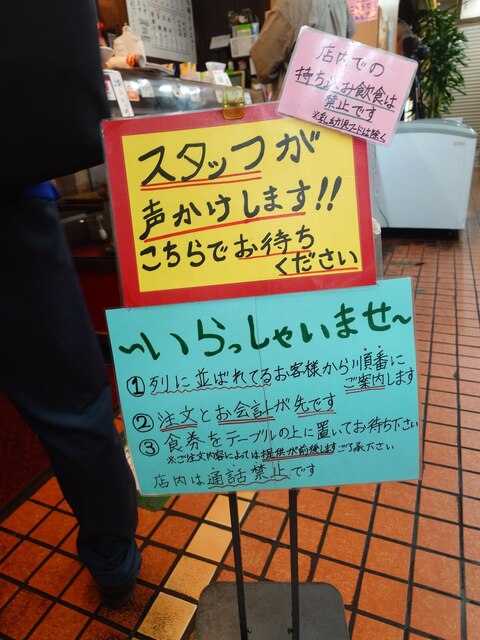 店内での
持ち込み飲食は
禁止です
※乳幼児フードは除く
スタッフが
声かけします!!
こちらでお待ち
ください
~いらっしゃいませ~
①列に並ばれてるお客様から順番に
ご案内します
②注文とお会計が先です
③食券をテーブルの上に置いてお待ち下さい
※ご注文内容によっては提供が前後しますご了承ください
店内は通話禁止です